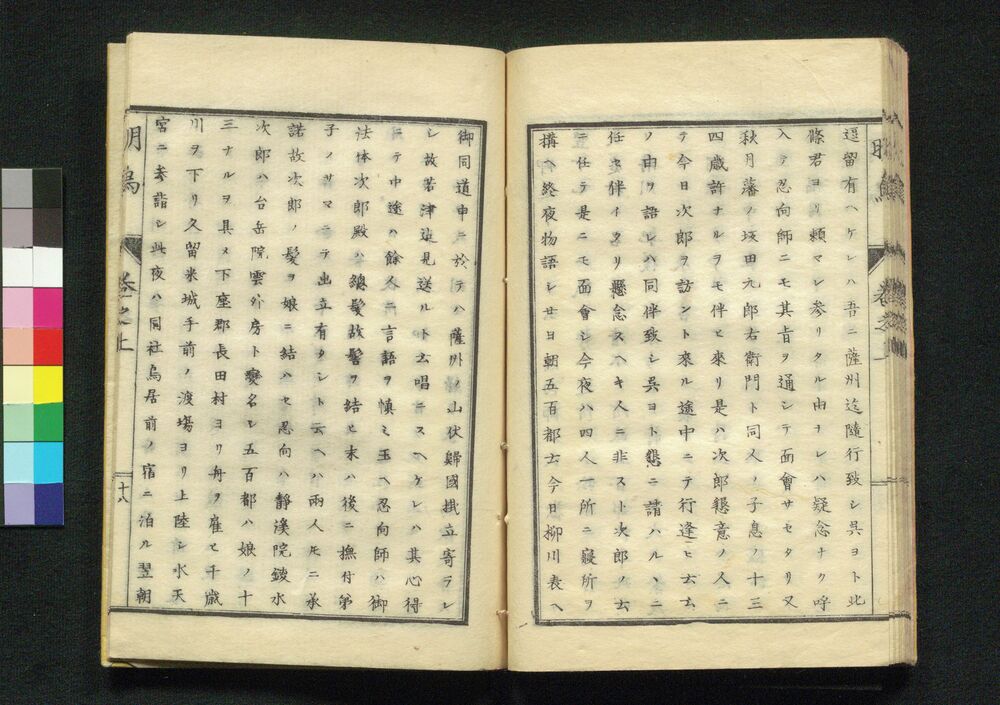 逗留有ヘケレハ吾ニ薩州迄隨行致シ呉ヨト此
條君ヨリ頼マレ參リタル由ヲレハ疑念ナク呼
入テ忍向師ニモ其旨ヲ通シテ面會サセタリ又
秋月藩ノ坂田九郎右衛門ト同人ノ子息ノ十三
四歳許ナルヲモ伴ヒ來リ是ハ次郎懇意ノ人ニ
テ今日次郎ヲ訪ント來ル途中ニテ行逢ヒ云云
ノ由ヲ語レハ同伴致シ呉ヨト懇ニ請ハル丶ニ
任セ伴イタリ懸念スヘキ人ニ非スト次郎ノ云
ニ任テ是ニモ面會シ今夜ハ四人一所ニ寢所ヲ
構ヘ終夜物語シ廿日朝五百都云今日柳川表ヘ
御同道申ニ於テハ薩州ノ山伏歸國掛立寄ラレ
シ故若津迄見送ルト云唱ニスヘケレハ其心得
ニテ中途ハ餘人ニ言語ヲ慎ミ玉ヘ忍向師ハ御
法体次郎殿ハ總髮故髻ヲ結ヒ末ハ後ニ撫付弟
子ノサマニテ出立有タシト云ヘハ兩人死ニ承
諾故次郎ノ髮ヲ娘ニ結ハセ忍向ハ靜溪院鋑水
次郎ハ台岳院雲外房ト變名シ五百都ハ娘ノ十
三ナルヲ具メ下座郡長田村ヨリ舟ヲ雇ヒ千歳
川ヲ下リ久留米城手前ノ渡塲ヨリ上陸シ水天
宮ニ參詣シ此夜ハ同社鳥居前ノ宿ニ泊ル翌朝
明烏
卷之上
十八